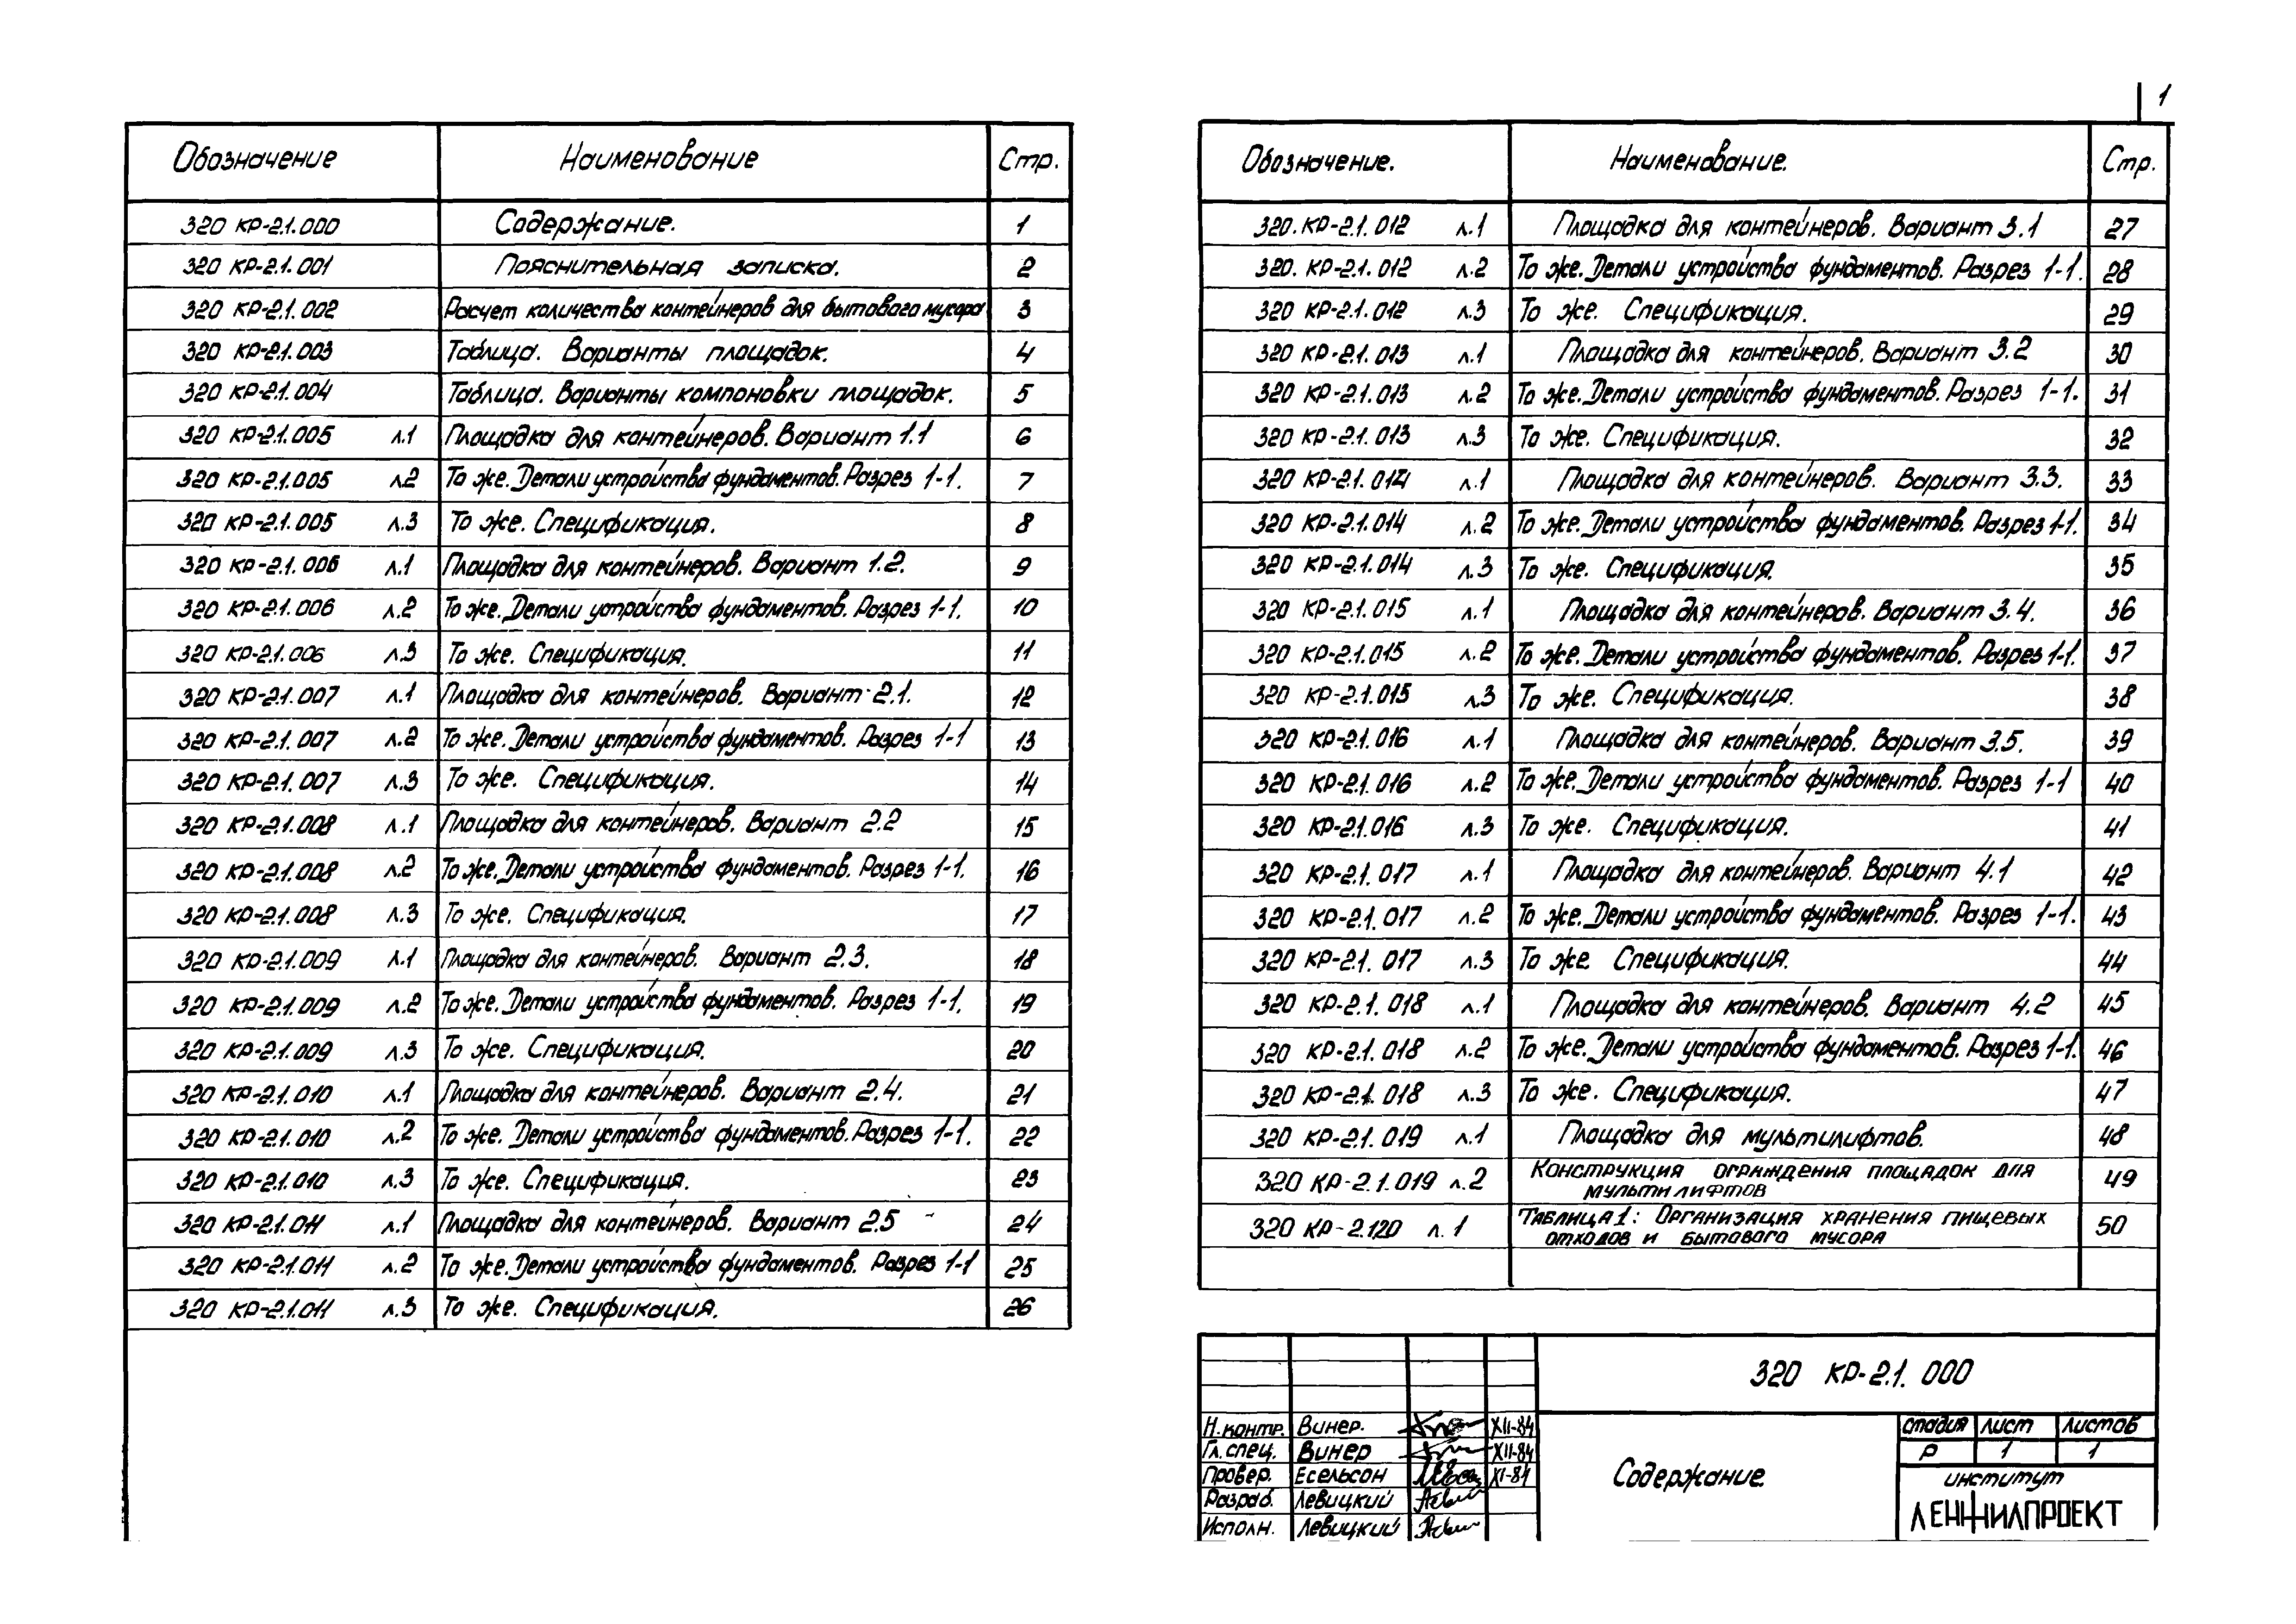 1
Обозначение Наименование Стр.
320 КР-2.1.000 Содержание. 1
320 КР-2.1.001 Пояснительная записка. 2
320 КР-2.1.002 Расчет количества контейнеров для бытового мусора 3
320 КР-2.1.003 Таблица. Варианты площадок. 4
320 КР-2.1.004 Таблица. Варианты компоновки площадок. 5
320 КР-2.1.005 л.1 Площадка для контейнеров. Вариант 1.1 6
320 КР-2.1.005 л.2 То же. Детали устройства фундаментов. Разрез 1-1. 7
320 КР-2.1.005 л.3 То же. Спецификация. 8
320 КР-2.1.006 л.1 Площадка для контейнеров. Вариант 1.2. 9
320 КР-2.1.006 л.2 То же. Детали устройства фундаментов. Разрез 1-1. 10
320 КР-2.1.006 л.3 То же. Спецификация. 11
320 КР-2.1.007 л.1 Площадка для контейнеров. Вариант 2.1. 12
320 КР-2.1.007 л.2 То же. Детали устройства фундаментов. Разрез 1-1 13
320 КР-2.1.007 л.3 То же. Спецификация. 14
320 КР-2.1.008 л.1 Площадка для контейнеров. Вариант 2.2 15
320 КР-2.1.008 л.2 То же. Детали устройства фундаментов. Разрез 1-1. 16
320 КР-2.1.008 л.3 То же. Спецификация. 17
320 КР-2.1.009 л.1 Площадка для контейнеров. Вариант 2.3. 18
320 КР-2.1.009 л.2 То же. Детали устройства фундаментов. Разрез 1-1. 19
320 КР-2.1.009 л.3 То же. Спецификация. 20
320 КР-2.1.010 л.1 Площадка для контейнеров. Вариант 2.4. 21
320 КР-2.1.010 л.2 То же. Детали устройства фундаментов. Разрез 1-1. 22
320 КР-2.1.010 л.3 То же. Спецификация. 23
320 КР-2.1.011 л.1 Площадка для контейнеров. Вариант 2.5 24
320 КР-2.1.011 л.2 То же. Детали устройства фундаментов. Разрез 1-1 25
320 КР-2.1.011 л.3 То же. Спецификация. 26
Обозначение. Наименование. Стр.
320. КР-2.1.012 л.1 Площадка для контейнеров. Вариант 3.1 27
320. КР-2.1.012 л.2 То же. Детали устройства фундаментов. Разрез 1-1. 28
320 КР-2.1.012 л.3 То же. Спецификация. 29
320 КР-2.1.013 л.1 Площадка для контейнеров. Вариант 3.2 30
320 КР-2.1.013 л.2 То же. Детали устройства фундаментов. Разрез 1-1. 31
320 КР-2.1.013 л.3 То же. Спецификация. 32
320 КР-2.1.014 л.1 Площадка для контейнеров. Вариант 3.3. 33
320 КР-2.1.014 л.2 То же. Детали устройства фундаментов. Разрез 1-1. 34
320 КР-2.1.014 л.3 То же. Спецификация. 35
320 КР-2.1.015 л.1 Площадка для контейнеров. Вариант 3.4. 36
320 КР-2.1.015 л.2 То же. Детали устройства фундаментов. Разрез 1-1. 37
320 КР-2.1.015 л.3 То же. Спецификация. 38
320 КР-2.1.016 л.1 Площадка для контейнеров. Вариант 3.5. 39
320 КР-2.1.016 л.2 То же. Детали устройства фундаментов. Разрез 1-1 40
320 КР-2.1.016 л.3 То же. Спецификация. 41
320 КР-2.1.017 л.1 Площадка для контейнеров. Вариант 4.1 42
320 КР-2.1.017 л.2 То же. Детали устройства фундаментов. Разрез 1-1. 43
320 КР-2.1.017 л.3 То же Спецификация. 44
320 КР-2.1.018 л.1 Площадка для контейнеров. Вариант 4.2 45
320 КР-2.1.018 л.2 То же. Детали устройства фундаментов. Разрез 1-1. 46
320 КР-2.1.018 л.3 То же. Спецификация. 47
320 КР-2.1.019 л.1 Площадка для мультилифтов. 48
320 КР-2.1.019 л.2 Конструкция ограждения площадок для 49
мультилифтов
320 КР-2.120 л.1 Таблица 1: Организация хранения пищевых 50
отходов и бытового мусора
320 КР-2.1.000
Н.контр. Винер. XII-84
Гл.спец. Винер XII-84
Провер. Есельсон XI-84
Разраб. Левицкий
Исполн. Левицкий
Содержание.
стадия лист листов
Р 1 1
институт
ЛЕНЖИЛПРОЕКТ